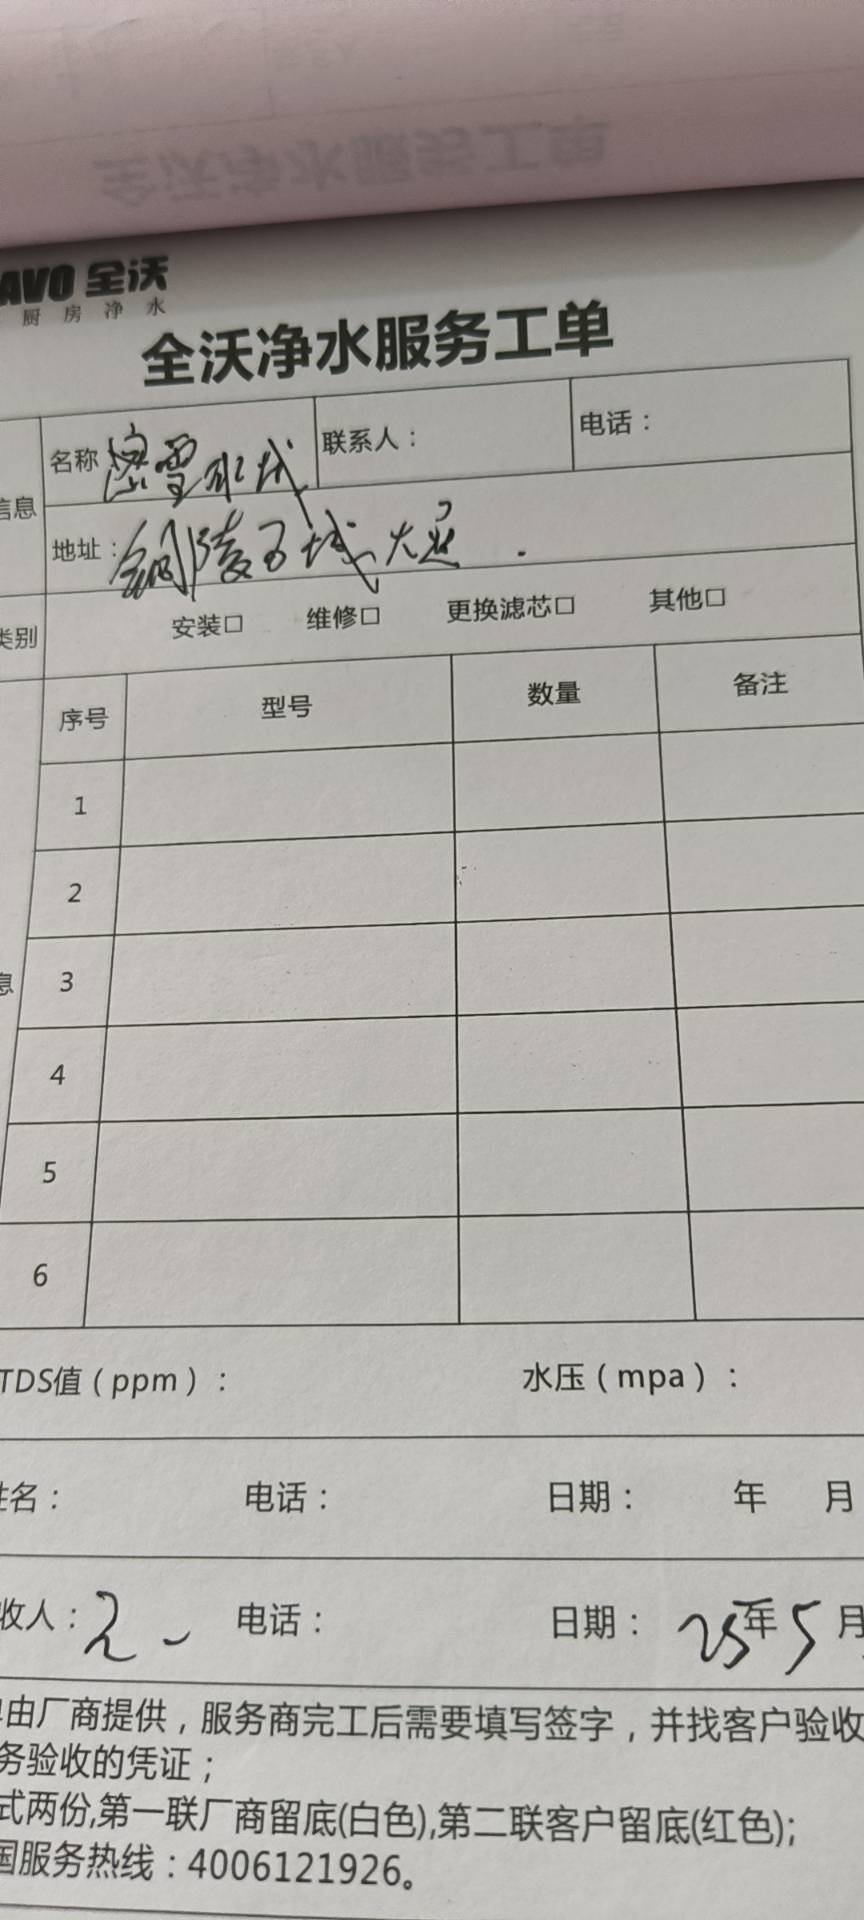 AVO 全沃
厨房净水
全沃净水服务工单
信息
名称 密雪冰城
联系人：
电话：
地址：铜陵 大
类别
安装□ 维修□ 更换滤芯□ 其他□
序号 型号 数量 备注
1
2
3
息
4
5
6
TDS值（ppm）： 水压（mpa）：
姓名： 电话： 日期： 年 月
收人： 电话： 日期： 25年5月
由厂商提供，服务商完工后需要填写签字，并找客户验收
务验收的凭证；
式两份,第一联厂商留底(白色),第二联客户留底(红色);
国服务热线：4006121926。